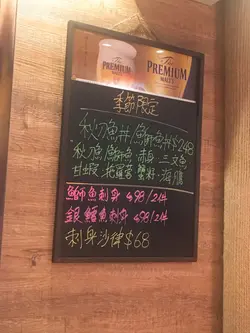 The PREMIUM MALT'S
The PREMIUM MALT'S
季節限定
秋刀魚丼/鰤魚丼 $248
秋刀魚 鰤魚 赤身 三文魚
甘蝦 海膽
鰤魚刺身 $98/2件
銀鱈魚刺身 $98/2件
刺身沙律 $68